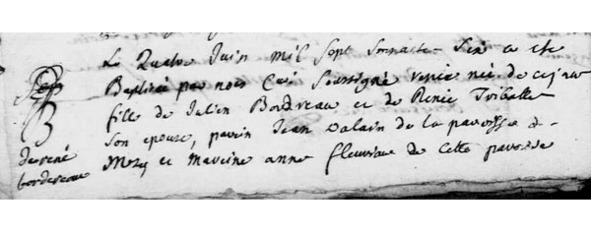 Le Quatre Juin mil sept soixante Six a ete
Baptisée par nous Curé soussigné renée née de ce jour
fille de Julien Bordereau et de Renée Tribalte
Son epouse, parein Jean Valain de la paroisse de
et mareine anne fleuriau de Cette paroisse
de rené
bordereau